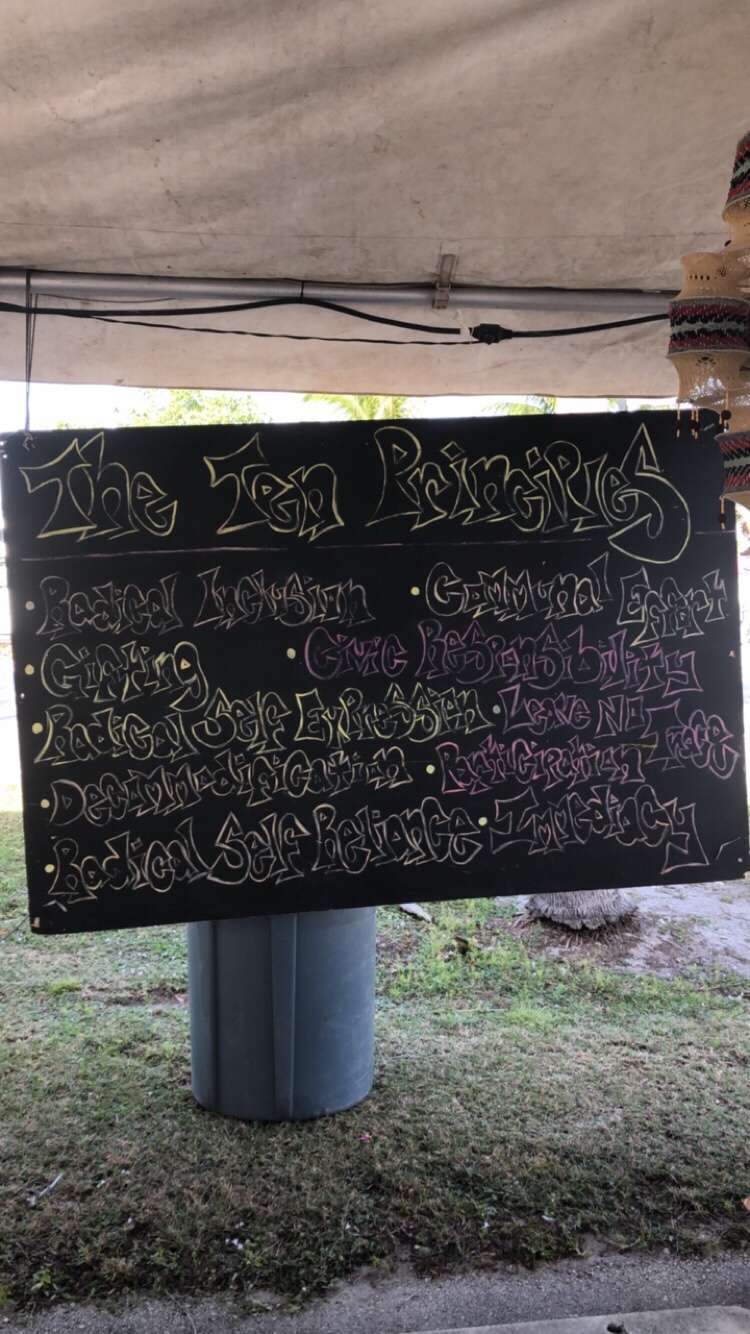 The Ten Principles
• Radical Inclusion • Communal Effort
• Gifting • Civic Responsibility
• Radical Self Expression • Leave No Trace
• Decommodification • Participation
• Radical Self Reliance • Immediacy